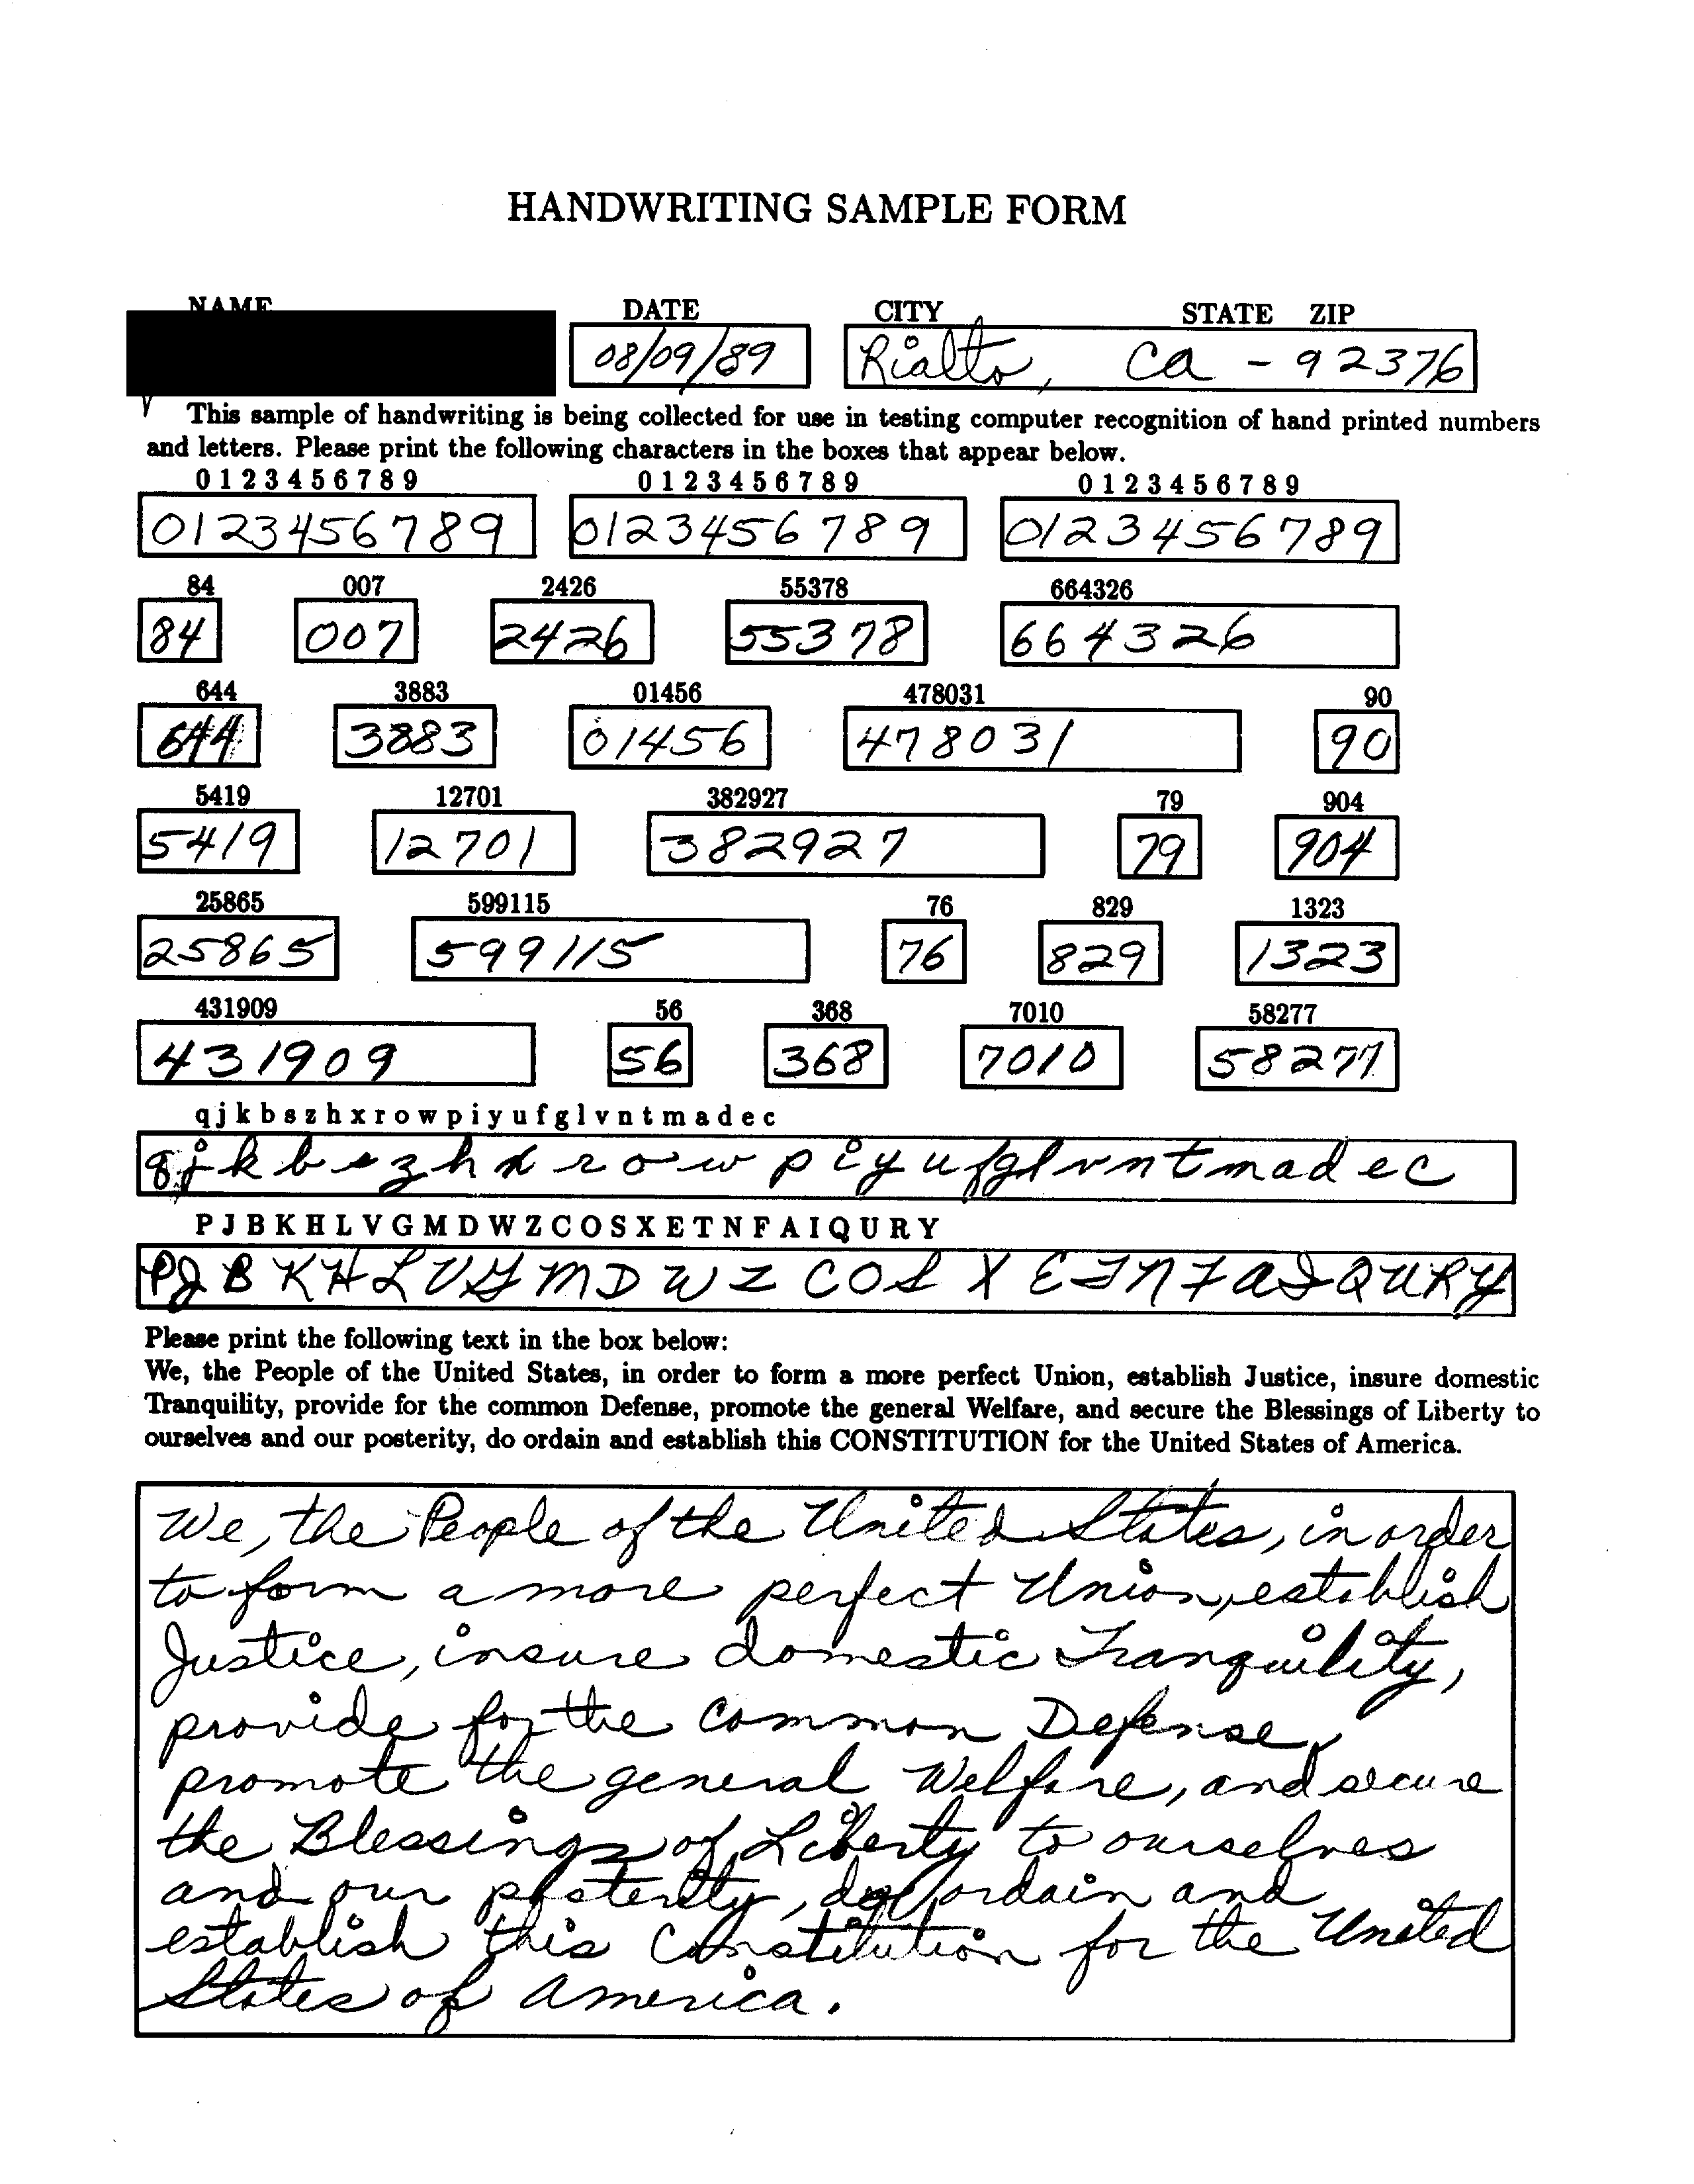 HANDWRITING SAMPLE FORM
NAME DATE CITY STATE ZIP
08/09/89 Rialto, Ca - 92376
This sample of handwriting is being collected for use in testing computer recognition of hand printed numbers
and letters. Please print the following characters in the boxes that appear below.
0 1 2 3 4 5 6 7 8 9 0 1 2 3 4 5 6 7 8 9 0 1 2 3 4 5 6 7 8 9
0123456789 0123456789 0123456789
84 007 2426 55378 664326
84 007 2426 55378 664326
644 3883 01456 478031 90
644 3883 01456 478031 90
5419 12701 382927 79 904
5419 12701 382927 79 904
25865 599115 76 829 1323
25865 599115 76 829 1323
431909 56 368 7010 58277
431909 56 368 7010 58277
q j k b s z h x r o w p i y u f g l v n t m a d e c
q j k b s z h x r o w p i y u f g l v n t m a d e c
P J B K H L V G M D W Z C O S X E T N F A I Q U R Y
P J B K H L V G M D W Z C O S X E T N F A I Q U R Y
Please print the following text in the box below:
We, the People of the United States, in order to form a more perfect Union, establish Justice, insure domestic
Tranquility, provide for the common Defense, promote the general Welfare, and secure the Blessings of Liberty to
ourselves and our posterity, do ordain and establish this CONSTITUTION for the United States of America.
We, the People of the United States, in order
to form a more perfect Union, establish
Justice, insure domestic Tranquility,
provide for the common Defense,
promote the general Welfare, and secure
the Blessings of Liberty to ourselves
and our posterity, do ordain and
establish this Constitution for the United
States of America.